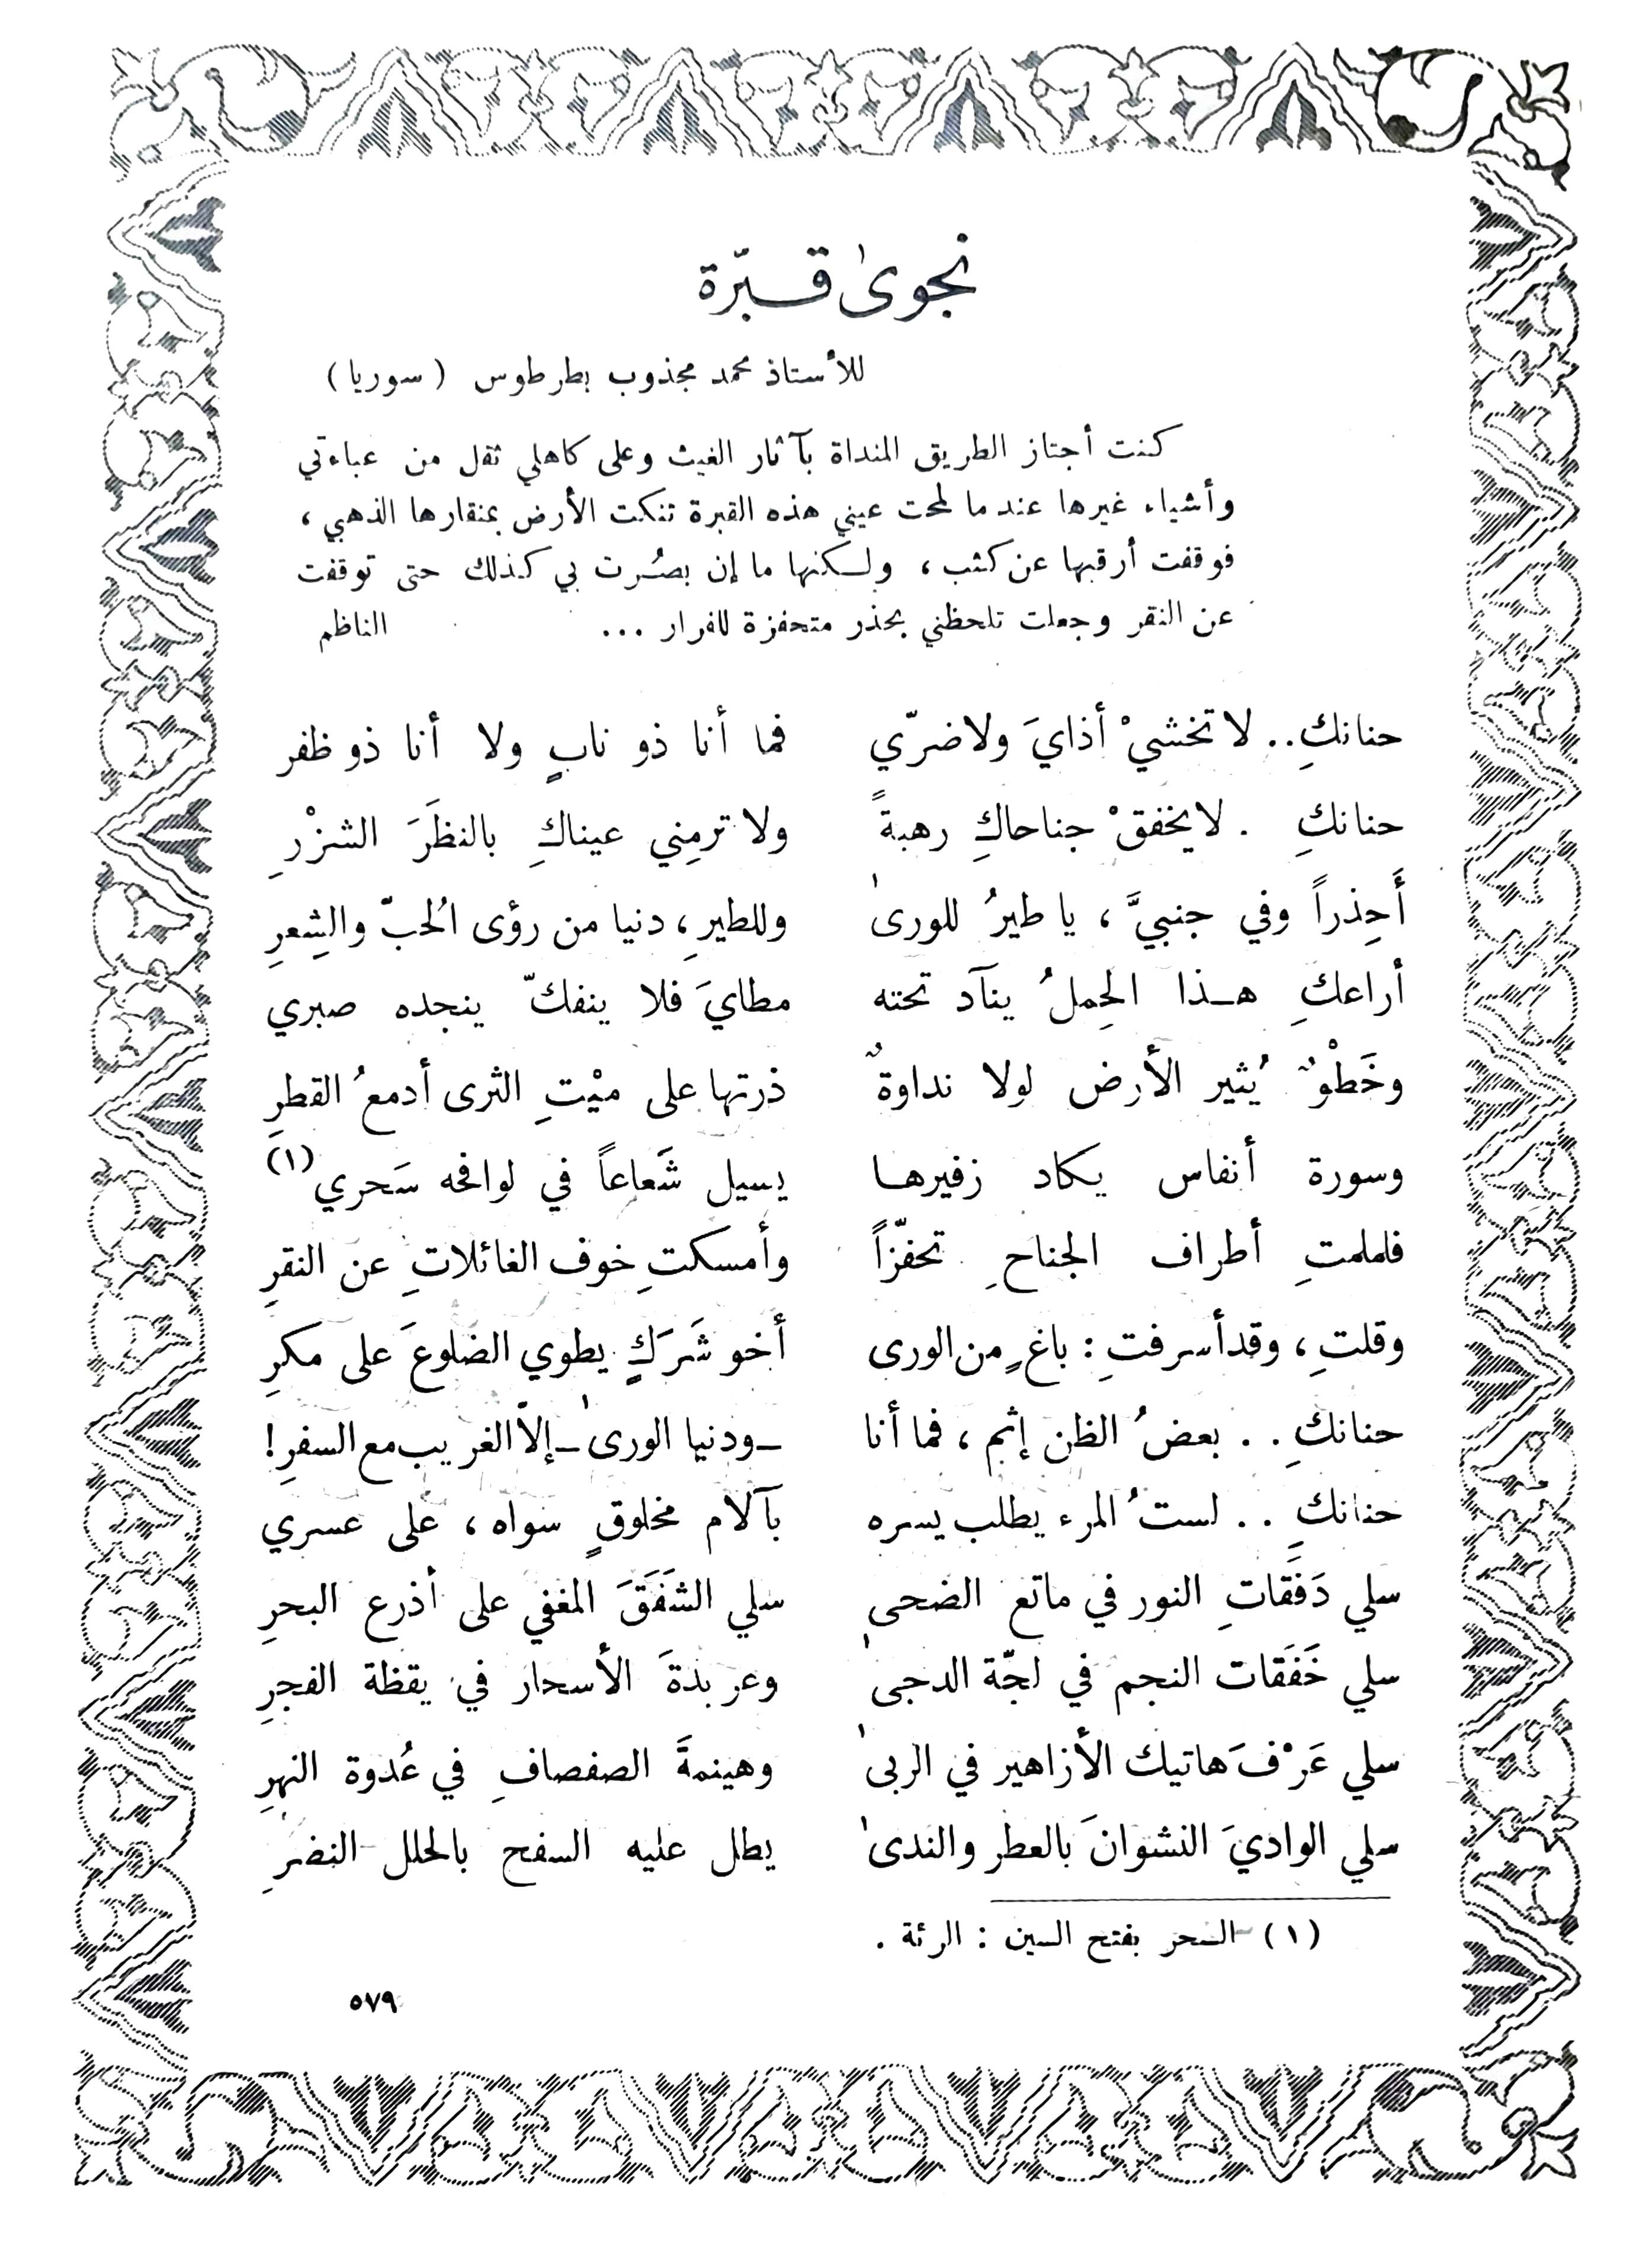 نجوىٰ قبّرة
للأستاذ محمد مجذوب بطرطوس ( سوريا )
كنت أجتاز الطريق المنداة بآثار الغيث وعلى كاهلي ثقل من عباءتي
وأشياء غيرها عند ما لمحت عيني هذه القبرة تنكت الأرض بمنقارها الذهبي ،
فوقفت أرقبها عن كثب ، ولكنها ما إن بصُرت بي كذلك حتى توقفت
عن النقر وجعلت تلحظني بحذر متحفزة للفرار ... الناظم
حنانكِ.. لا تخشيْ أذايَ ولا ضرّي فما أنا ذو نابٍ ولا أنا ذو ظفر
حنانكِ . لا يخفقْ جناحاكِ رهبةً ولا ترمِني عيناكِ بالنظَرَ الشزْرِ
أَحِذراً وفي جنبيَّ ، يا طيرُ للورىٰ وللطيرِ ، دنيا من رؤى الُحبّ والشِعرِ
أراعكِ هـذا الحِملُ ينآد تحته مطايَ فلا ينفكّ ينجده صبري
وخَطْوٌ يُثير الأرض لولا نداوةٌ ذرتها على ميْتِ الثرى أدمعُ القطرِ
وسورة أنفاس يكاد زفيرها يسيل شَعاعاً في لوافحه سَحري (١)
فلملمتِ أطراف الجناحِ تحفزّاً وأمسكتِ خوف الغائلاتِ عن النقرِ
وقلتِ ، وقد أسرفتِ : باغٍ من الورى أخو شَرَكٍ يطوي الضلوعَ على مكرِ
حنانكِ . . بعضُ الظن إثم ، فما أنا ـ ودنيا الورىٰ ـ إلاّ الغريب مع السفرِ !
حنانكِ . . لستُ المرء يطلب يسره بآلام مخلوقٍ سواه ، على عسري
سلي دَفَقاتِ النور في ماتع الضحىٰ سلي الشَفَقَ المغفي على أذرع البحرِ
سلي خَفَقات النجم في لجّة الدجىٰ وعربدةَ الأسحار في يقظة الفجرِ
سلي عَرْفَ هاتيك الأزاهير في الربىٰ وهينمةَ الصفصافِ في عُدوة النهرِ
سلي الواديَ النشوانَ بالعطر والندىٰ يطل عليه السفح بالحلل النضرِ
(١) السحر بفتح السين : الرئة .
٥٧٩